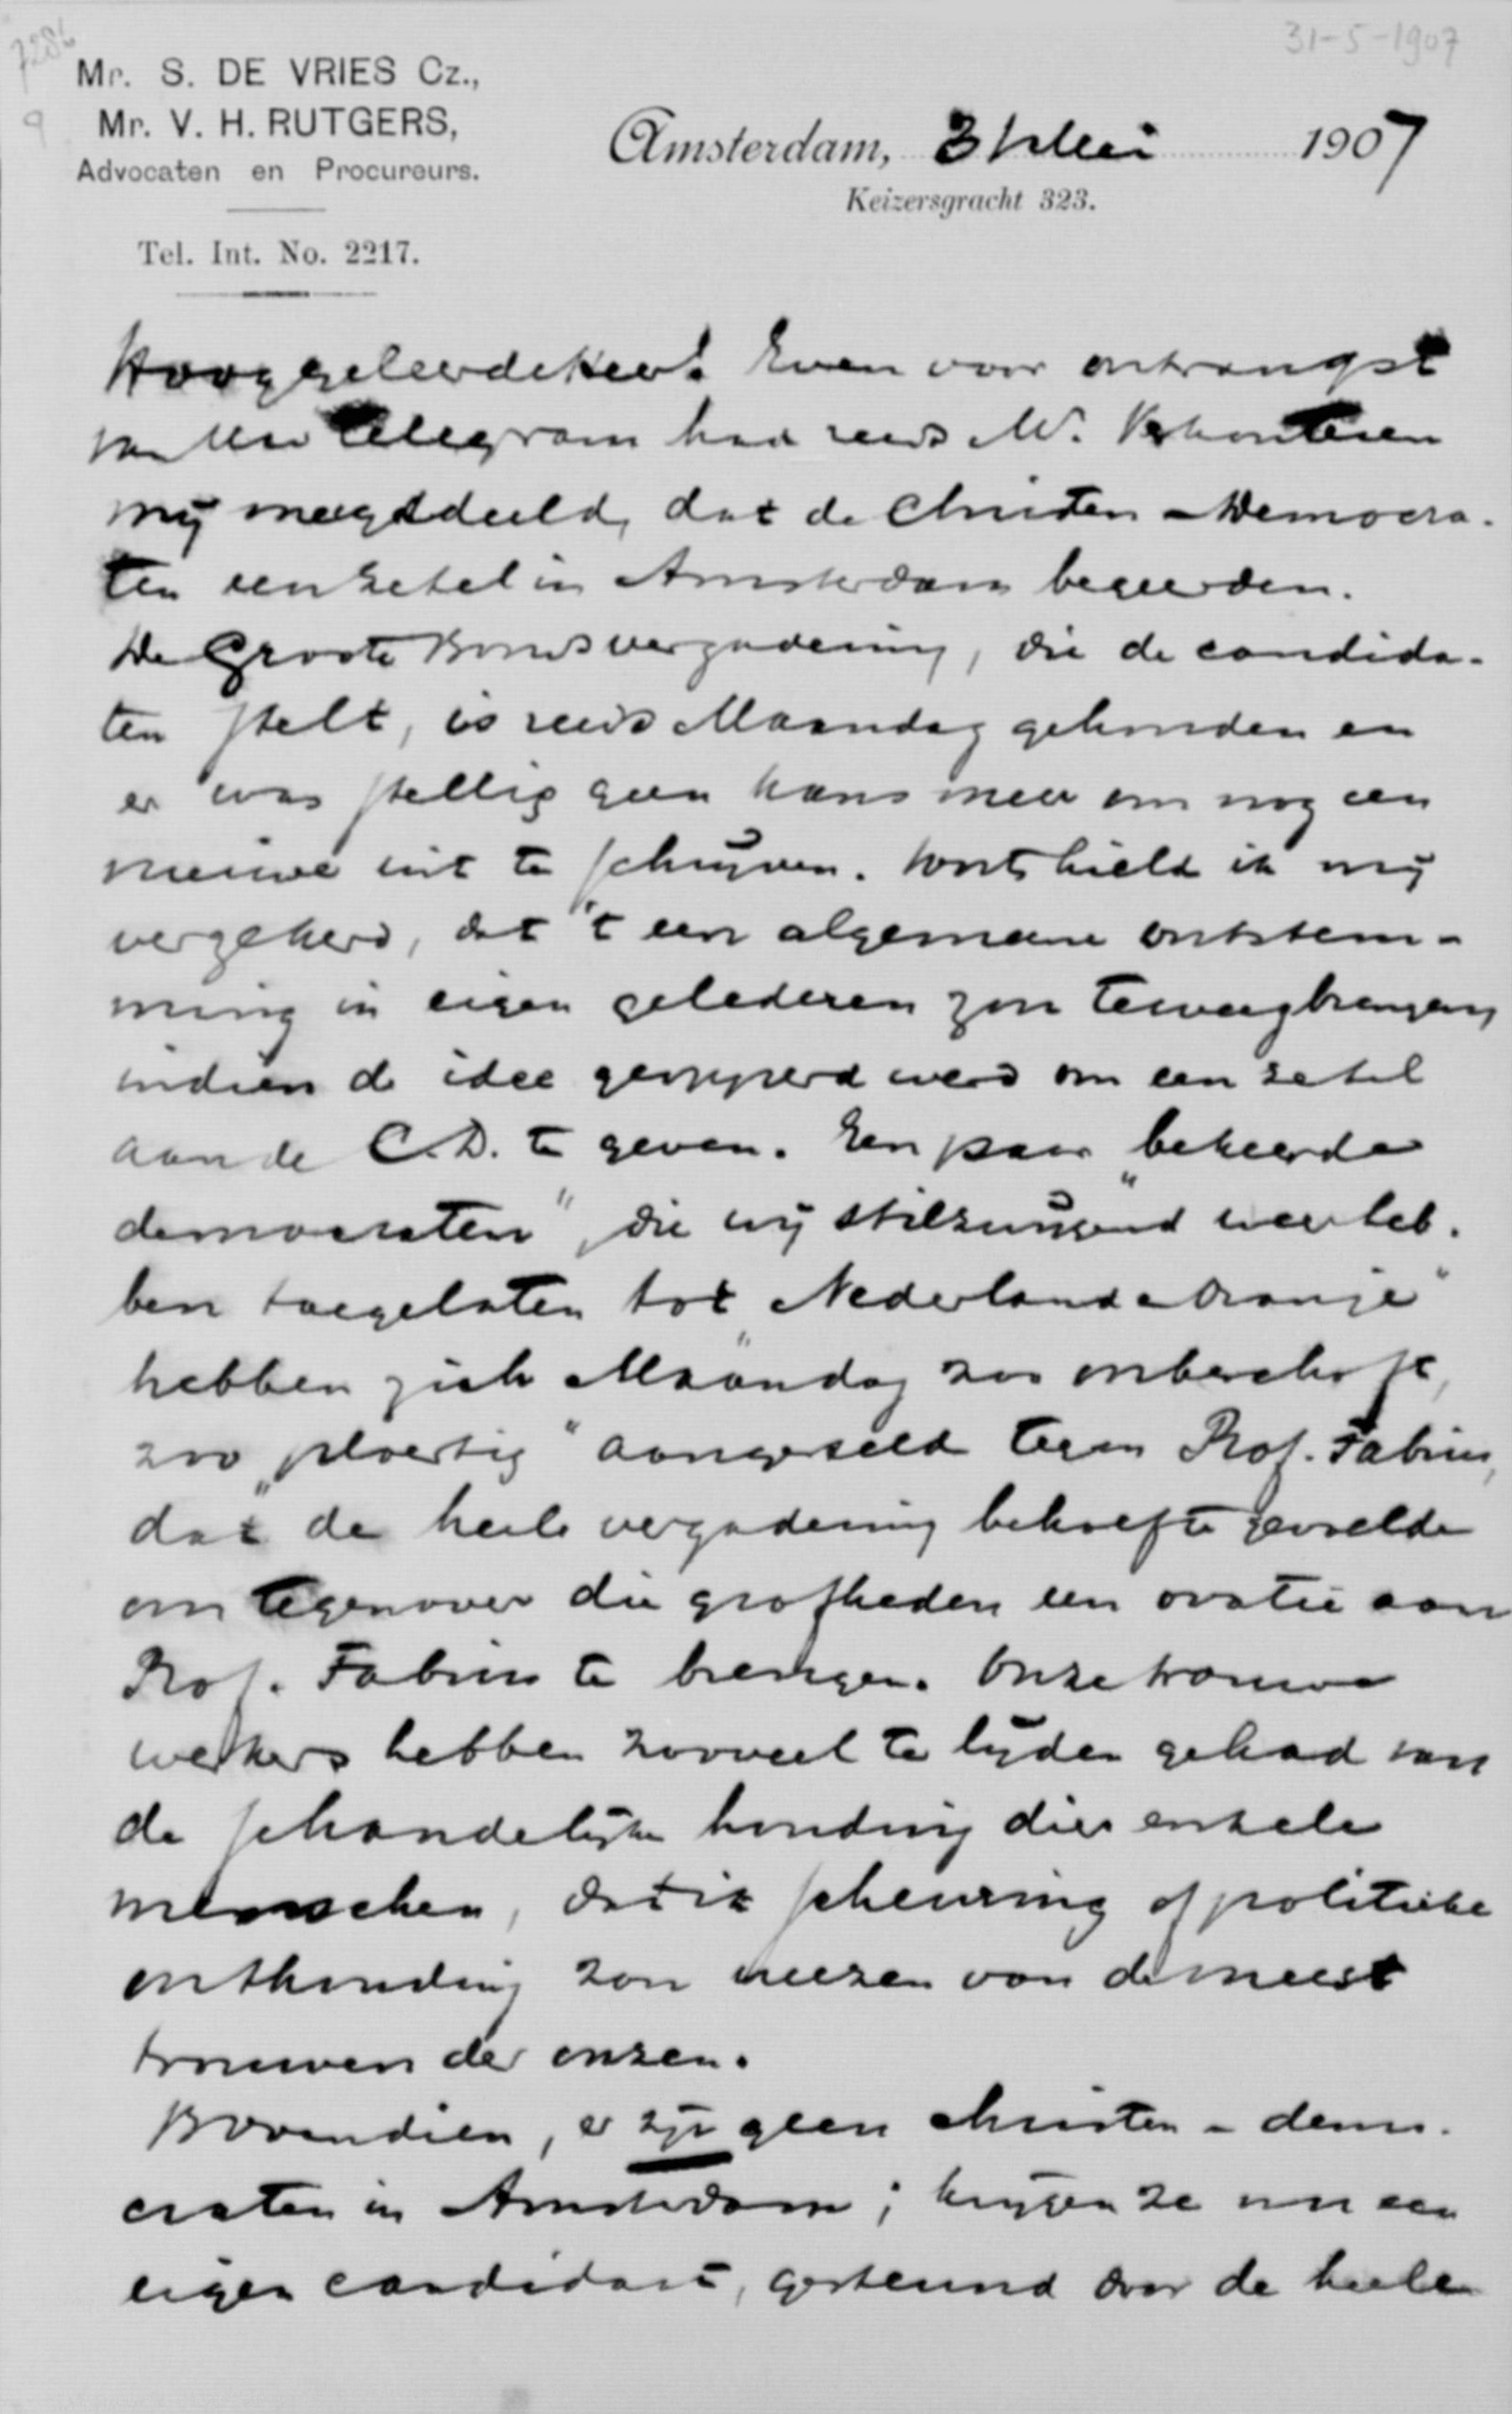 7286
9
31-5-1907
Mr. S. DE VRIES Cz.,
Mr. V. H. RUTGERS,
Advocaten en Procureurs.
Tel. Int. No. 2217.
Amsterdam, 31 Mei 1907
Keizersgracht 323.
Hooggeleerde Heer! Even voor ontvangst
van Uw telegram had reeds Mr. Verkouteren
mij meegedeeld, dat de Christen-Democra-
ten een zetel in Amsterdam begeerden.
De Groote Bondsvergadering, die de candida-
ten stelt, is reeds Maandag gehouden en
er was stellig geen kans meer om nog een
nieuwe uit te schrijven. Voorts hield ik mij
verzekerd, dat 't een algemeene ontstem-
ming in eigen gelederen zou teweegbrengen,
indien de idee geopperd werd om een zetel
aan de C.D. te geven. Een paar „bekeerde
democraten", die wij stilzwijgend weer heb-
ben toegelaten tot „Nederland en Oranje"
hebben zich Maandag zoo onbeschoft,
zoo „ploertig" aangesteld tegen Prof. Fabius,
dat de heele vergadering behoefte gevoelde
om tegenover die grofheden een ovatie aan
Prof. Fabius te brengen. Onze trouwe
werkers hebben zooveel te lijden gehad van
de schandelijke houding dier enkele
menschen, dat ik scheuring of politieke
onthouding zou vreezen van de meest
trouwen der onzen.
Bovendien, er zijn geen christen-demo-
craten in Amsterdam; krijgen ze nu een
eigen candidaat, gesteund door de heele